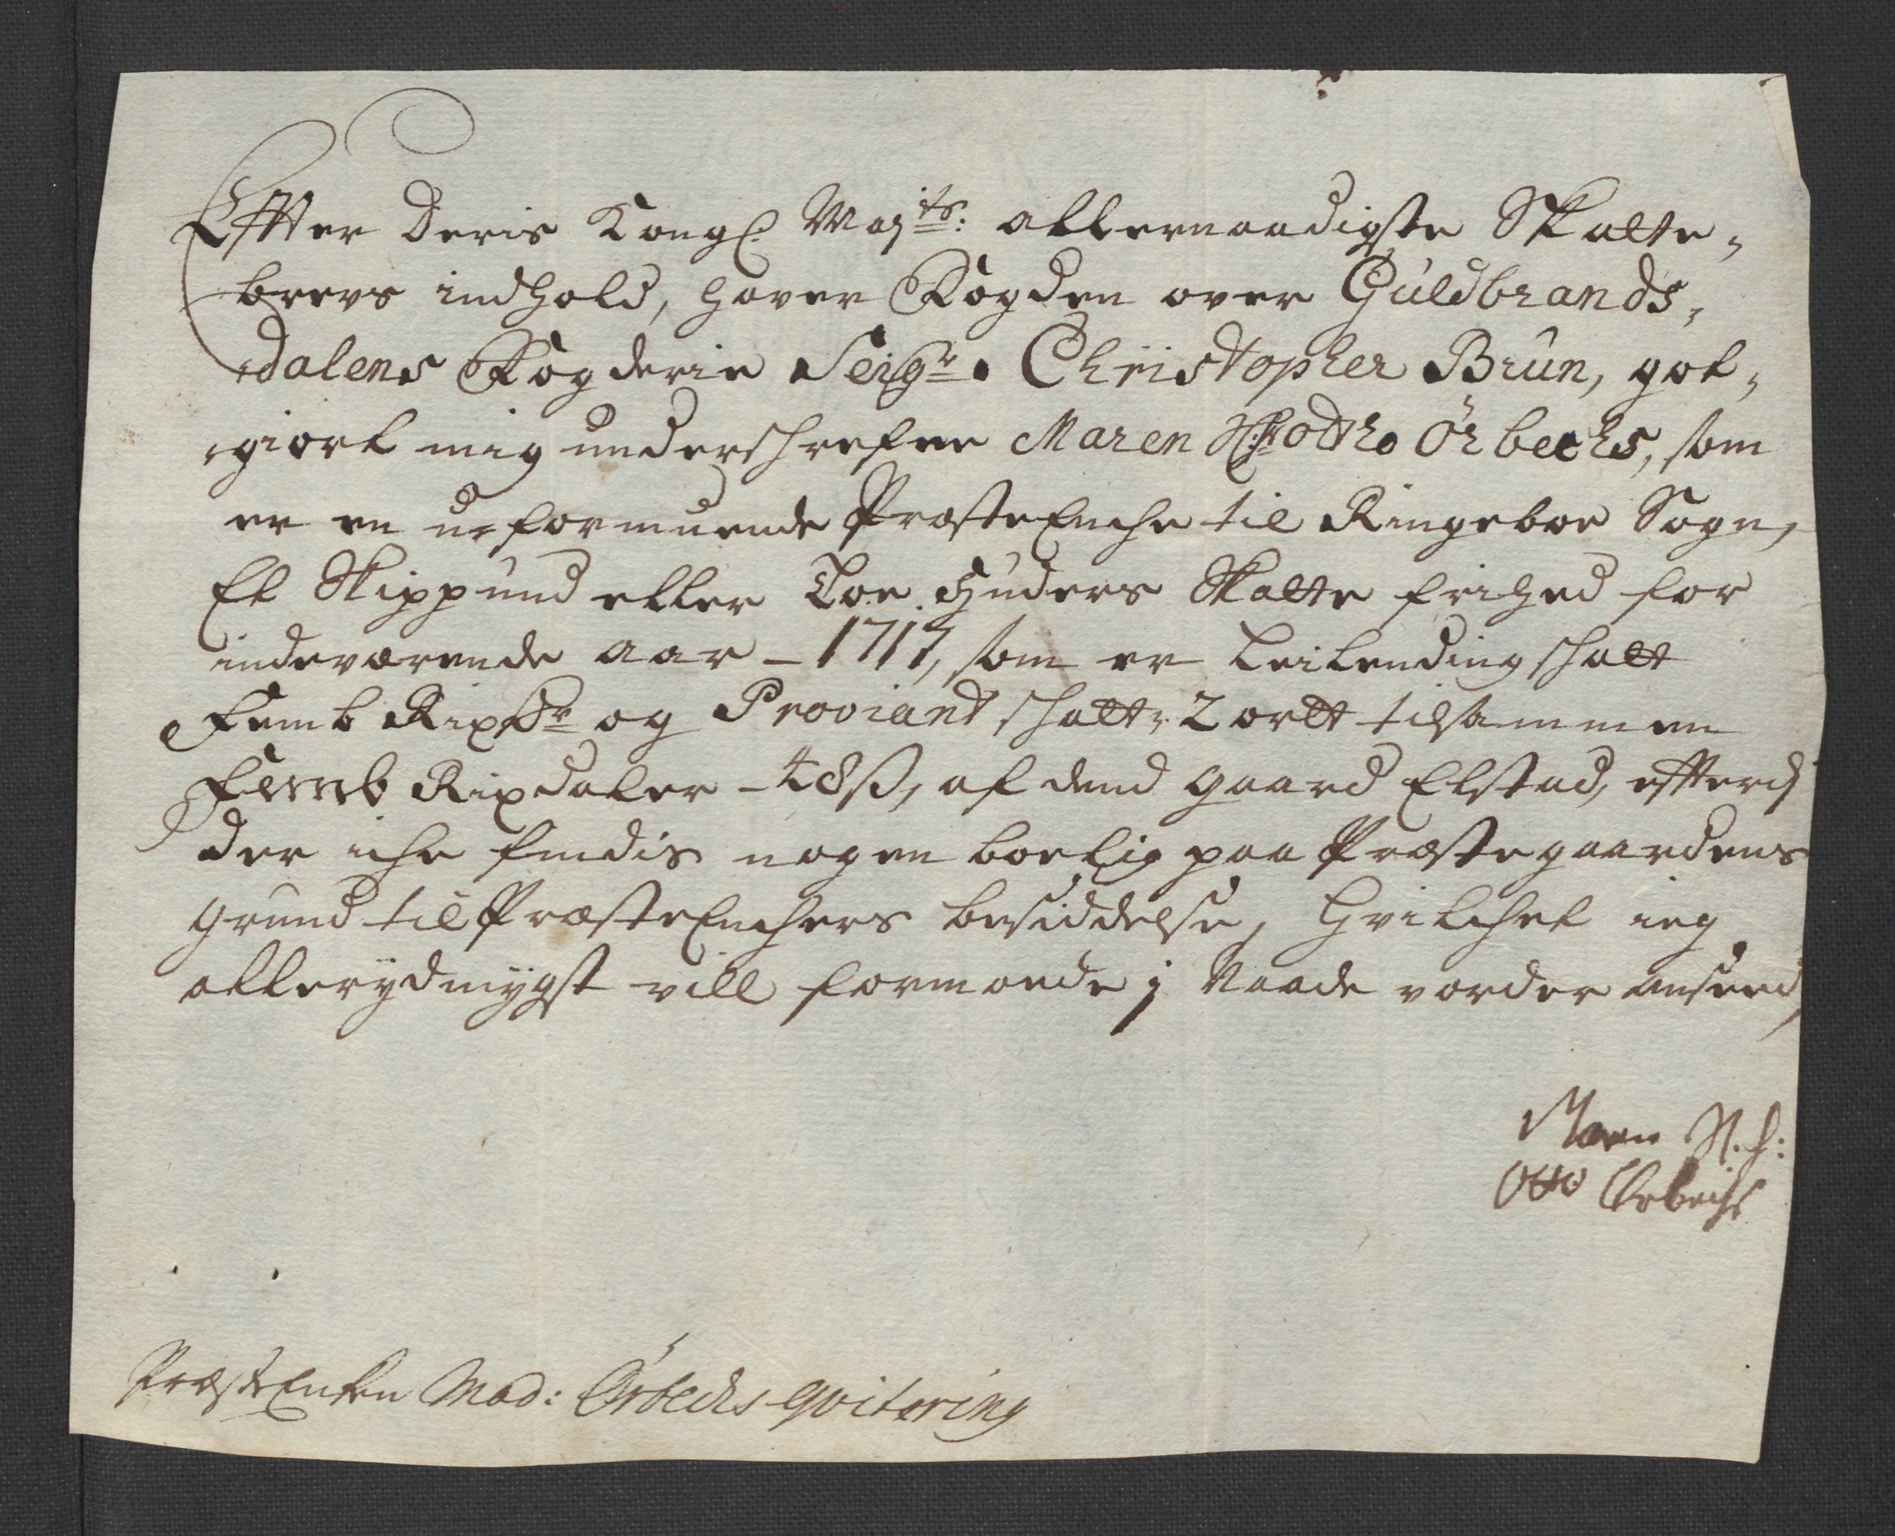 Effter Deris Kongl. Maj:ts: allernaadigste Skatte-
brevs indhold, haver Fogden over Guldbrands-
dalens Fogderie Seigr. Christopher Brun, got-
giort mig underschrefne Maren Otto Örbechs, som
er en uformuende PræsteEnche til Ringeboe Sogn,
Et Skippund eller Toe Huders Skatte frihed for
indeværende aar - 1717, som er Leilending schatt
Femb Rixdr og Proviant schatt 2 ortt tilsammen
Femb Rixdaler - 48 ß, af dend gaard Elstad, efterdj
der iche findis nogen boelig paa Præstegaardens
grund til PræsteEnchers besiddelse, hvilchet ieg
allerydmygst vill formoede j Naade vorder anseed,
Maren S. H:
Otto Örbechs
PræsteEnken Mad: Örbechs qvitering